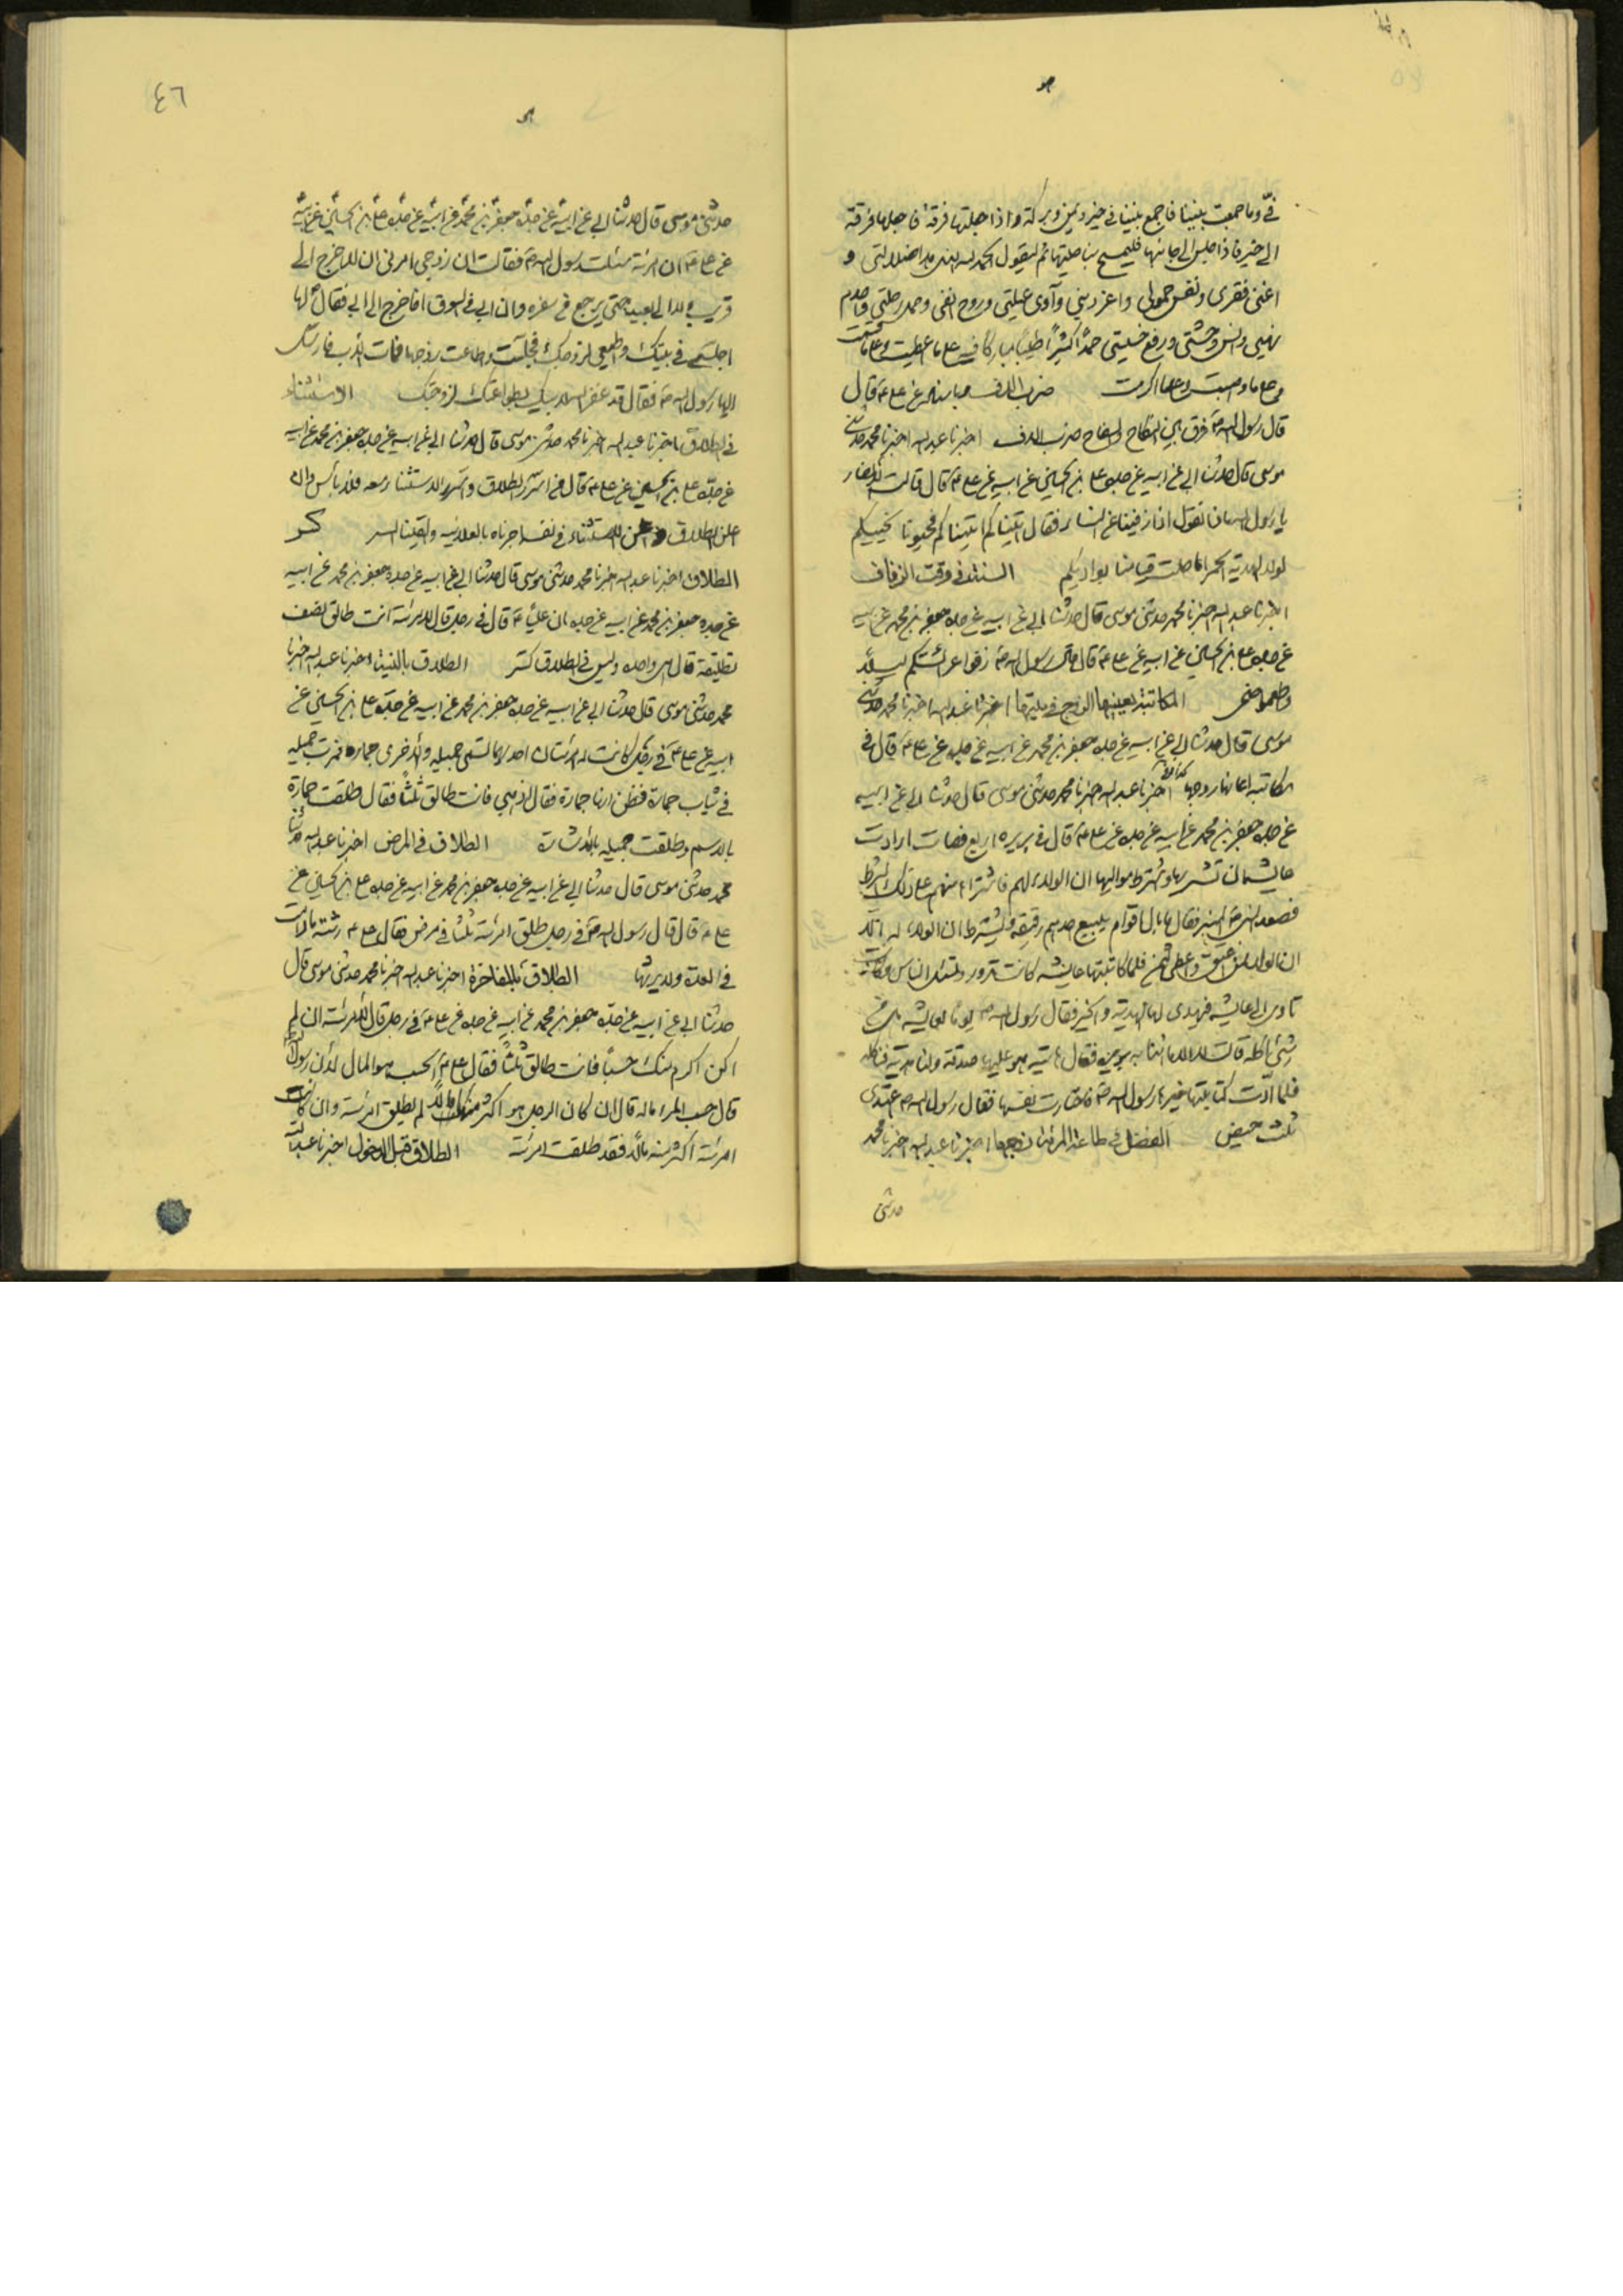 هو
فيّ وما جمعت بيننا فاجمع بيننا في خير ويمن وبركة واذا جعلتها فرقة فاجعلها فرقة
الى خير فاذا جلس الى جانبها فليمسح بناصيتها ثم ليقول الحمد لله الذي هدا ضلالتي و
اغنى فقرى ونعش خمولى واعز ذلتي وآوى عيلتي وزوج ... وحمل رحلتي واخدم
مهنتي وانس وحشتي ورفع خسيستي حمدا كثيرا طيبا مباركا فيه على ما اعطيت وعلى ما قسمت
وعلى ما وهبت وعلى ما اكرمت ضرب الدف ... عن على ع قال
قال رسول الله ص فرق بين النكاح والسفاح ضرب الدف اخبرنا عبدالله اخبرنا محمد حدثنى
موسى قال حدثنا ابي عن ابيه عن جده على بن الحسين عن ابيه عن على ع قال قالت الانصار
يا رسول الله ماذا نقول اذا زففنا النساء فقال اتيناكم اتيناكم فحيونا نحييكم
لولا الذهبة الحمرا ما حلت فتاتنا بواديكم السنة في وقت الزفاف
اخبرنا عبدالله اخبرنا محمد حدثنى موسى قال حدثنا ابي عن ابيه عن جده جعفر بن محمد عن ابيه
عن جده على بن الحسين عن ابيه عن على ع قال قال رسول الله ص زفوا عرائسكم ليلا
واطعموا ضحى المكاتبة يعينها الزوج في ... اخبرنا عبدالله اخبرنا محمد حدثنى
موسى قال حدثنا ابي عن ابيه عن جده جعفر بن محمد عن ابيه عن جده عن على ع قال في
مكاتبة اعانها زوجها اخبرنا عبدالله اخبرنا محمد حدثنى موسى قال حدثنا ابي عن ابيه
عن جده جعفر بن محمد عن ابيه عن جده عن على ع قال في بريره اربع قضيات ارادت
عايشه ان تشتريها واشترط مواليها ان الولاء لهم فاشترا منهم على ذلك الشرط
فصعد النبي ص المنبر فقال ما بال اقوام يبيع احدهم رقيقه ويشترط ان الولاء له الا
ان الولاء لمن اعتق واعطى الثمن فلما كاتبتها عايشه كانت تدور وتسئل الناس وكانت
تاوى الى عايشه فتهدى لها الهدية والخبز فقال رسول الله ص يوما لعايشه هل من
شئ ناكله قالت لا الا ما اتتنا به بريره فقال هاتيه هو عليها صدقة ولنا هدية فناكله
فلما ادت كتابتها خيرها رسول الله ص فاختارت نفسها فقال رسول الله ص اعتدى
ثلث حيض الفضل في طاعة المرئة زوجها اخبرنا عبدالله اخبرنا محمد
حدثنى
٤٦
هو
حدثنى موسى قال حدثنا ابي عن ابيه عن جده جعفر بن محمد عن ابيه عن جده على بن الحسين عن ابيه
عن على ع ان امرئة سئلت رسول الله ص فقالت ان زوجي امرنى ان لا اخرج الى
قريب ولا الى بعيد حتى يرجع من سفره وان ابي في السوق افاخرج الى ابي فقال لها
اجلسي في بيتك واطيعي لزوجك فجلست واطاعت زوجها فمات الاب فارسل
اليها رسول الله ص فقال قد غفر الله لابيك بطواعتك لزوجك الاستثناء
في الطلاق اخبرنا عبدالله اخبرنا محمد حدثنى موسى قال حدثنا ابي عن ابيه عن جده جعفر بن محمد عن ابيه
عن جده على بن الحسين عن على ع قال من اسر الطلاق واسر الاستثناء معه فلا باس وان
اعلن الطلاق واعلن الاستثناء في نفسه اجزناه بالعلانيه والقينا السر كسر
الطلاق اخبرنا عبدالله اخبرنا محمد حدثنى موسى قال حدثنا ابي عن ابيه عن جده جعفر بن محمد عن ابيه
عن جده جعفر بن محمد عن ابيه عن جده ان عليا ع قال في رجل قال لامرئته انت طالق نصف
تطليقة قال هى واحده وليس في الطلاق كسر الطلاق بالنية اخبرنا عبدالله اخبرنا
محمد حدثنى موسى قال حدثنا ابي عن ابيه عن جده جعفر بن محمد عن ابيه عن جده على بن الحسين عن
ابيه عن على ع في رجل كانت له امرئتان احديهما تسمى جميله والاخرى جماره فمرت جميله
في ثياب جمارة فظن انها جمارة فقال اذهبي فانت طالق ثلثا فقال طلقت جمارة
بالاسم وطلقت جميله بالاشارة الطلاق في المرض اخبرنا عبدالله اخبرنا
محمد حدثنى موسى قال حدثنا ابي عن ابيه عن جده جعفر بن محمد عن ابيه عن جده على بن الحسين عن
على ع قال قال رسول الله ص في رجل طلق امرئته ثلثا في مرض فقال على ع ترثه مادامت
في العدة ولا يرثها الطلاق بالمفاخرة اخبرنا عبدالله اخبرنا محمد حدثنى موسى قال
حدثنا ابي عن ابيه عن جده جعفر بن محمد عن ابيه عن جده عن على ع في رجل قال لامرئته ان لم
اكن اكرم منك حسبا فانت طالق ثلثا فقال على ع الحسب هو المال لان رسول الله
قال حسب المرء ماله قال ان كان الرجل هو اكثر منها مالا لم يطلق امرئته وان كانت
امرئته اكثر منه مالا فقد طلقت امرئته الطلاق قبل الدخول اخبرنا عبدالله